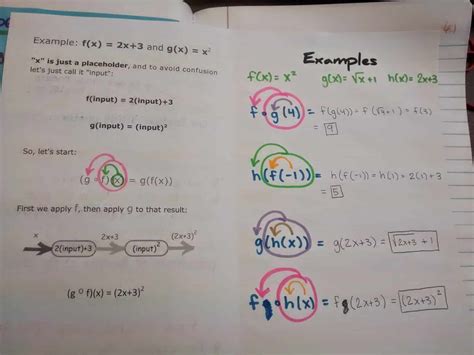 Example: f(x) = 2x+3 and g(x) = x²
"x" is just a placeholder, and to avoid confusion
let's just call it "input":
f(input) = 2(input)+3
g(input) = (input)²
So, let's start:
(g ∘ f)(x) = g(f(x))
First we apply f, then apply g to that result:
x 2x+3 (2x+3)²
2(input)+3 (input)²
(g ∘ f)(x) = (2x+3)²
Examples
f(x) = x² g(x) = √x + 1 h(x) = 2x+3
f ∘ g(4) = f(g(4)) = f(√4+1) = f(3)
= 9
h(f(-1)) = h(f(-1)) = h(1) = 2(1)+3
= 5
g(h(x)) = g(2x+3) = √2x+3 + 1
f ∘ h(x) = f(2x+3) = (2x+3)²